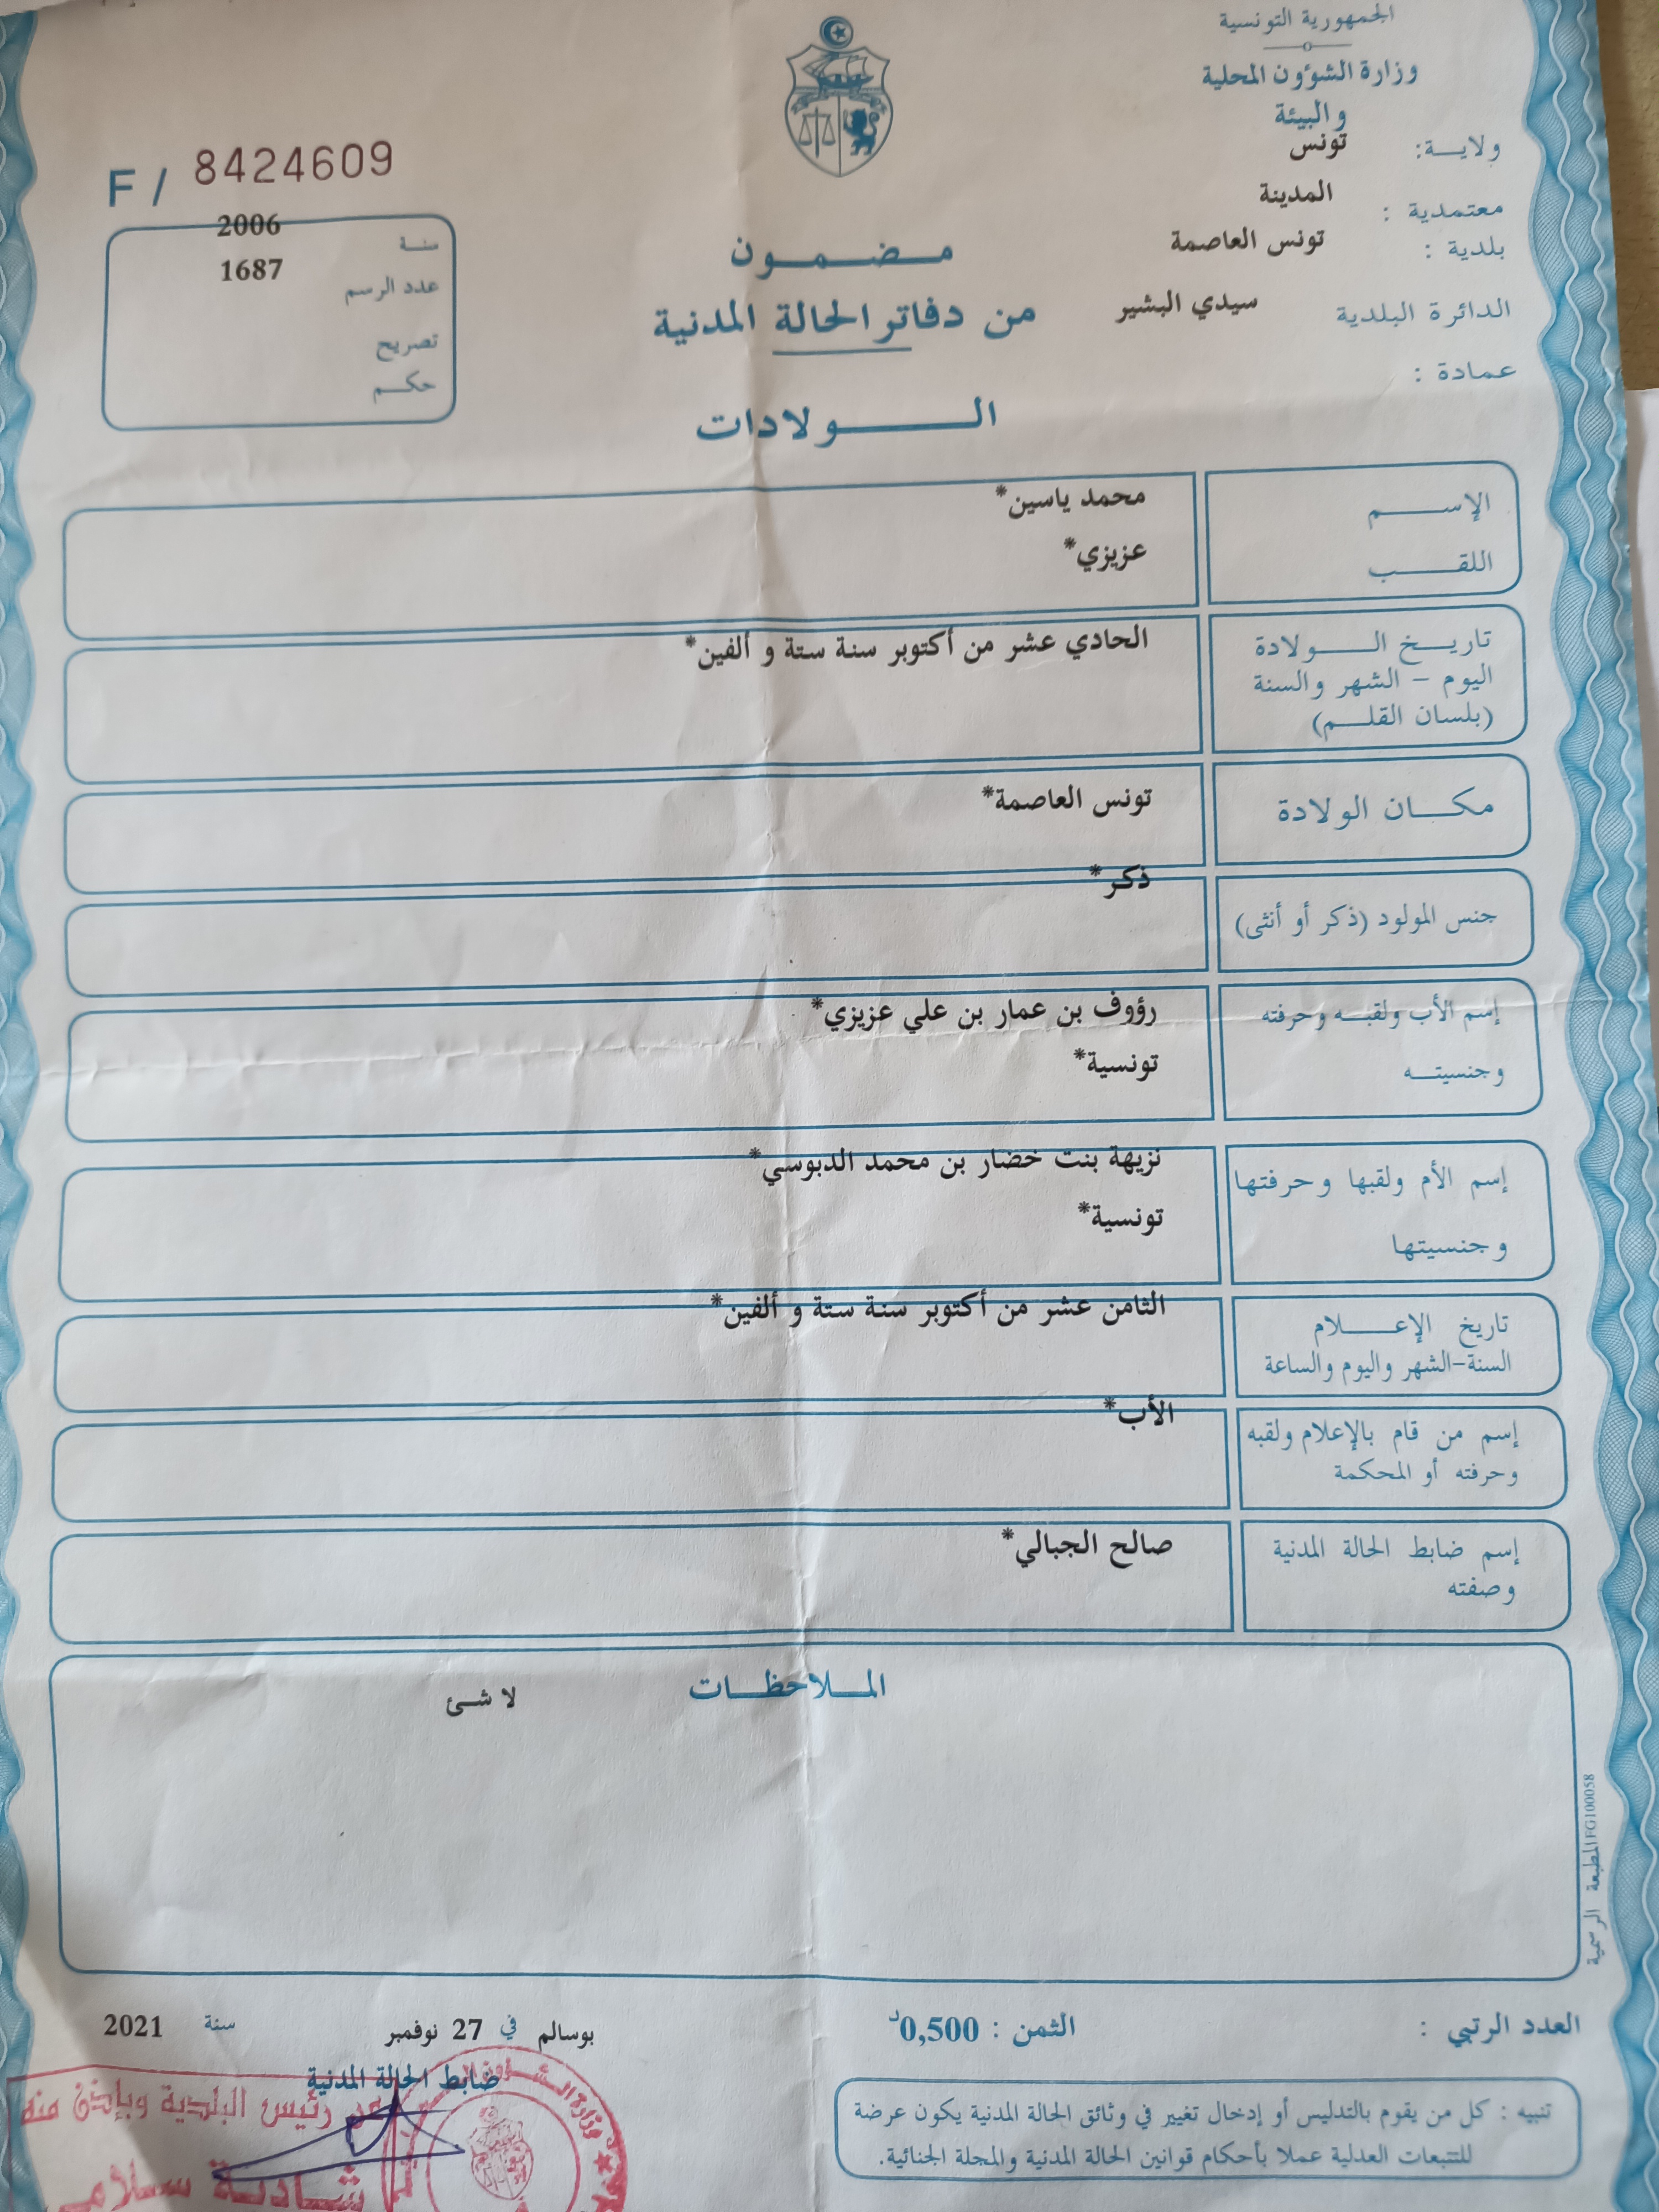 الجمهورية التونسية
وزارة الشؤون المحلية
والبيئة
ولاية: تونس
معتمدية : المدينة
بلدية : تونس العاصمة
الدائرة البلدية سيدي البشير
عمادة :
F / 8424609
سنة 2006
عدد الرسم 1687
تصريح
حكم
مضمون
من دفاتر الحالة المدنية
الولادات
الإسم محمد ياسين*
اللقب عزيزي*
تاريخ الولادة الحادي عشر من أكتوبر سنة ستة و ألفين*
اليوم - الشهر والسنة
(بلسان القلم)
مكان الولادة تونس العاصمة*
جنس المولود (ذكر أو أنثى) ذكر*
إسم الأب ولقبه وحرفته رؤوف بن عمار بن علي عزيزي*
وجنسيته تونسية*
إسم الأم ولقبها وحرفتها نزيهة بنت خضار بن محمد الدبوسي*
وجنسيتها تونسية*
تاريخ الإعلام الثامن عشر من أكتوبر سنة ستة و ألفين*
السنة-الشهر واليوم والساعة
إسم من قام بالإعلام ولقبه الأب*
وحرفته أو المحكمة
إسم ضابط الحالة المدنية صالح الجبالي*
وصفته
الملاحظات
لا شئ
المطبعة الرسمية FG100058
العدد الرتبي : الثمن : 0,500د
بوسالم في 27 نوفمبر سنة 2021
ضابط الحالة المدنية
رئيس البلدية وبإذن منه
شادية سلامي
تنبيه : كل من يقوم بالتدليس أو إدخال تغيير في وثائق الحالة المدنية يكون عرضة
للتتبعات العدلية عملا بأحكام قوانين الحالة المدنية والمجلة الجنائية.